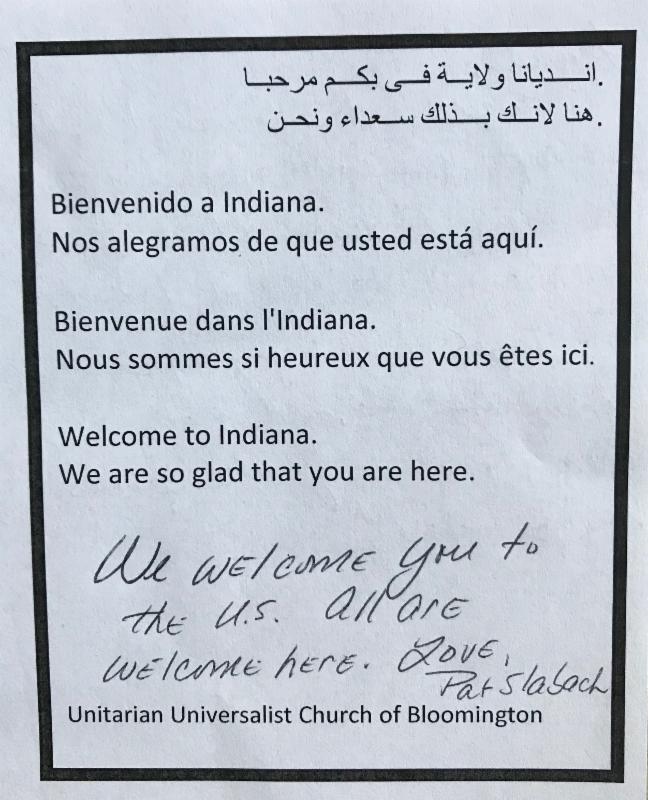 .انديانا ولاية فى بكم مرحبا
.هنا لانك بذلك سعداء ونحن
Bienvenido a Indiana.
Nos alegramos de que usted está aquí.
Bienvenue dans l'Indiana.
Nous sommes si heureux que vous êtes ici.
Welcome to Indiana.
We are so glad that you are here.
We welcome you to
the U.S. All are
welcome here. Love,
Pat Slabach
Unitarian Universalist Church of Bloomington